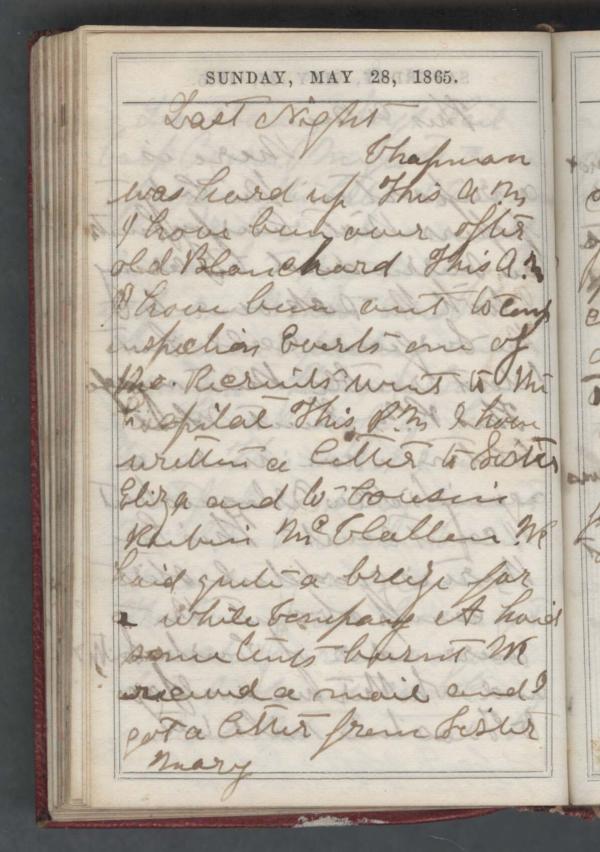 SUNDAY, MAY 28, 1865.
Last Night
Chapman
was hard up This A.M
I have been over after
old Blanchard This A.M
I have been out to Comp
inspection Everts one of
the Recruits went to the
hospital This P.M I have
written a letter to Sister
Eliza and to Cousin
Rubin McClallen We
haid quite a breeze for
a while Company A haid
some tents burnt We
received a mail and I
got a letter from Sister
Mary